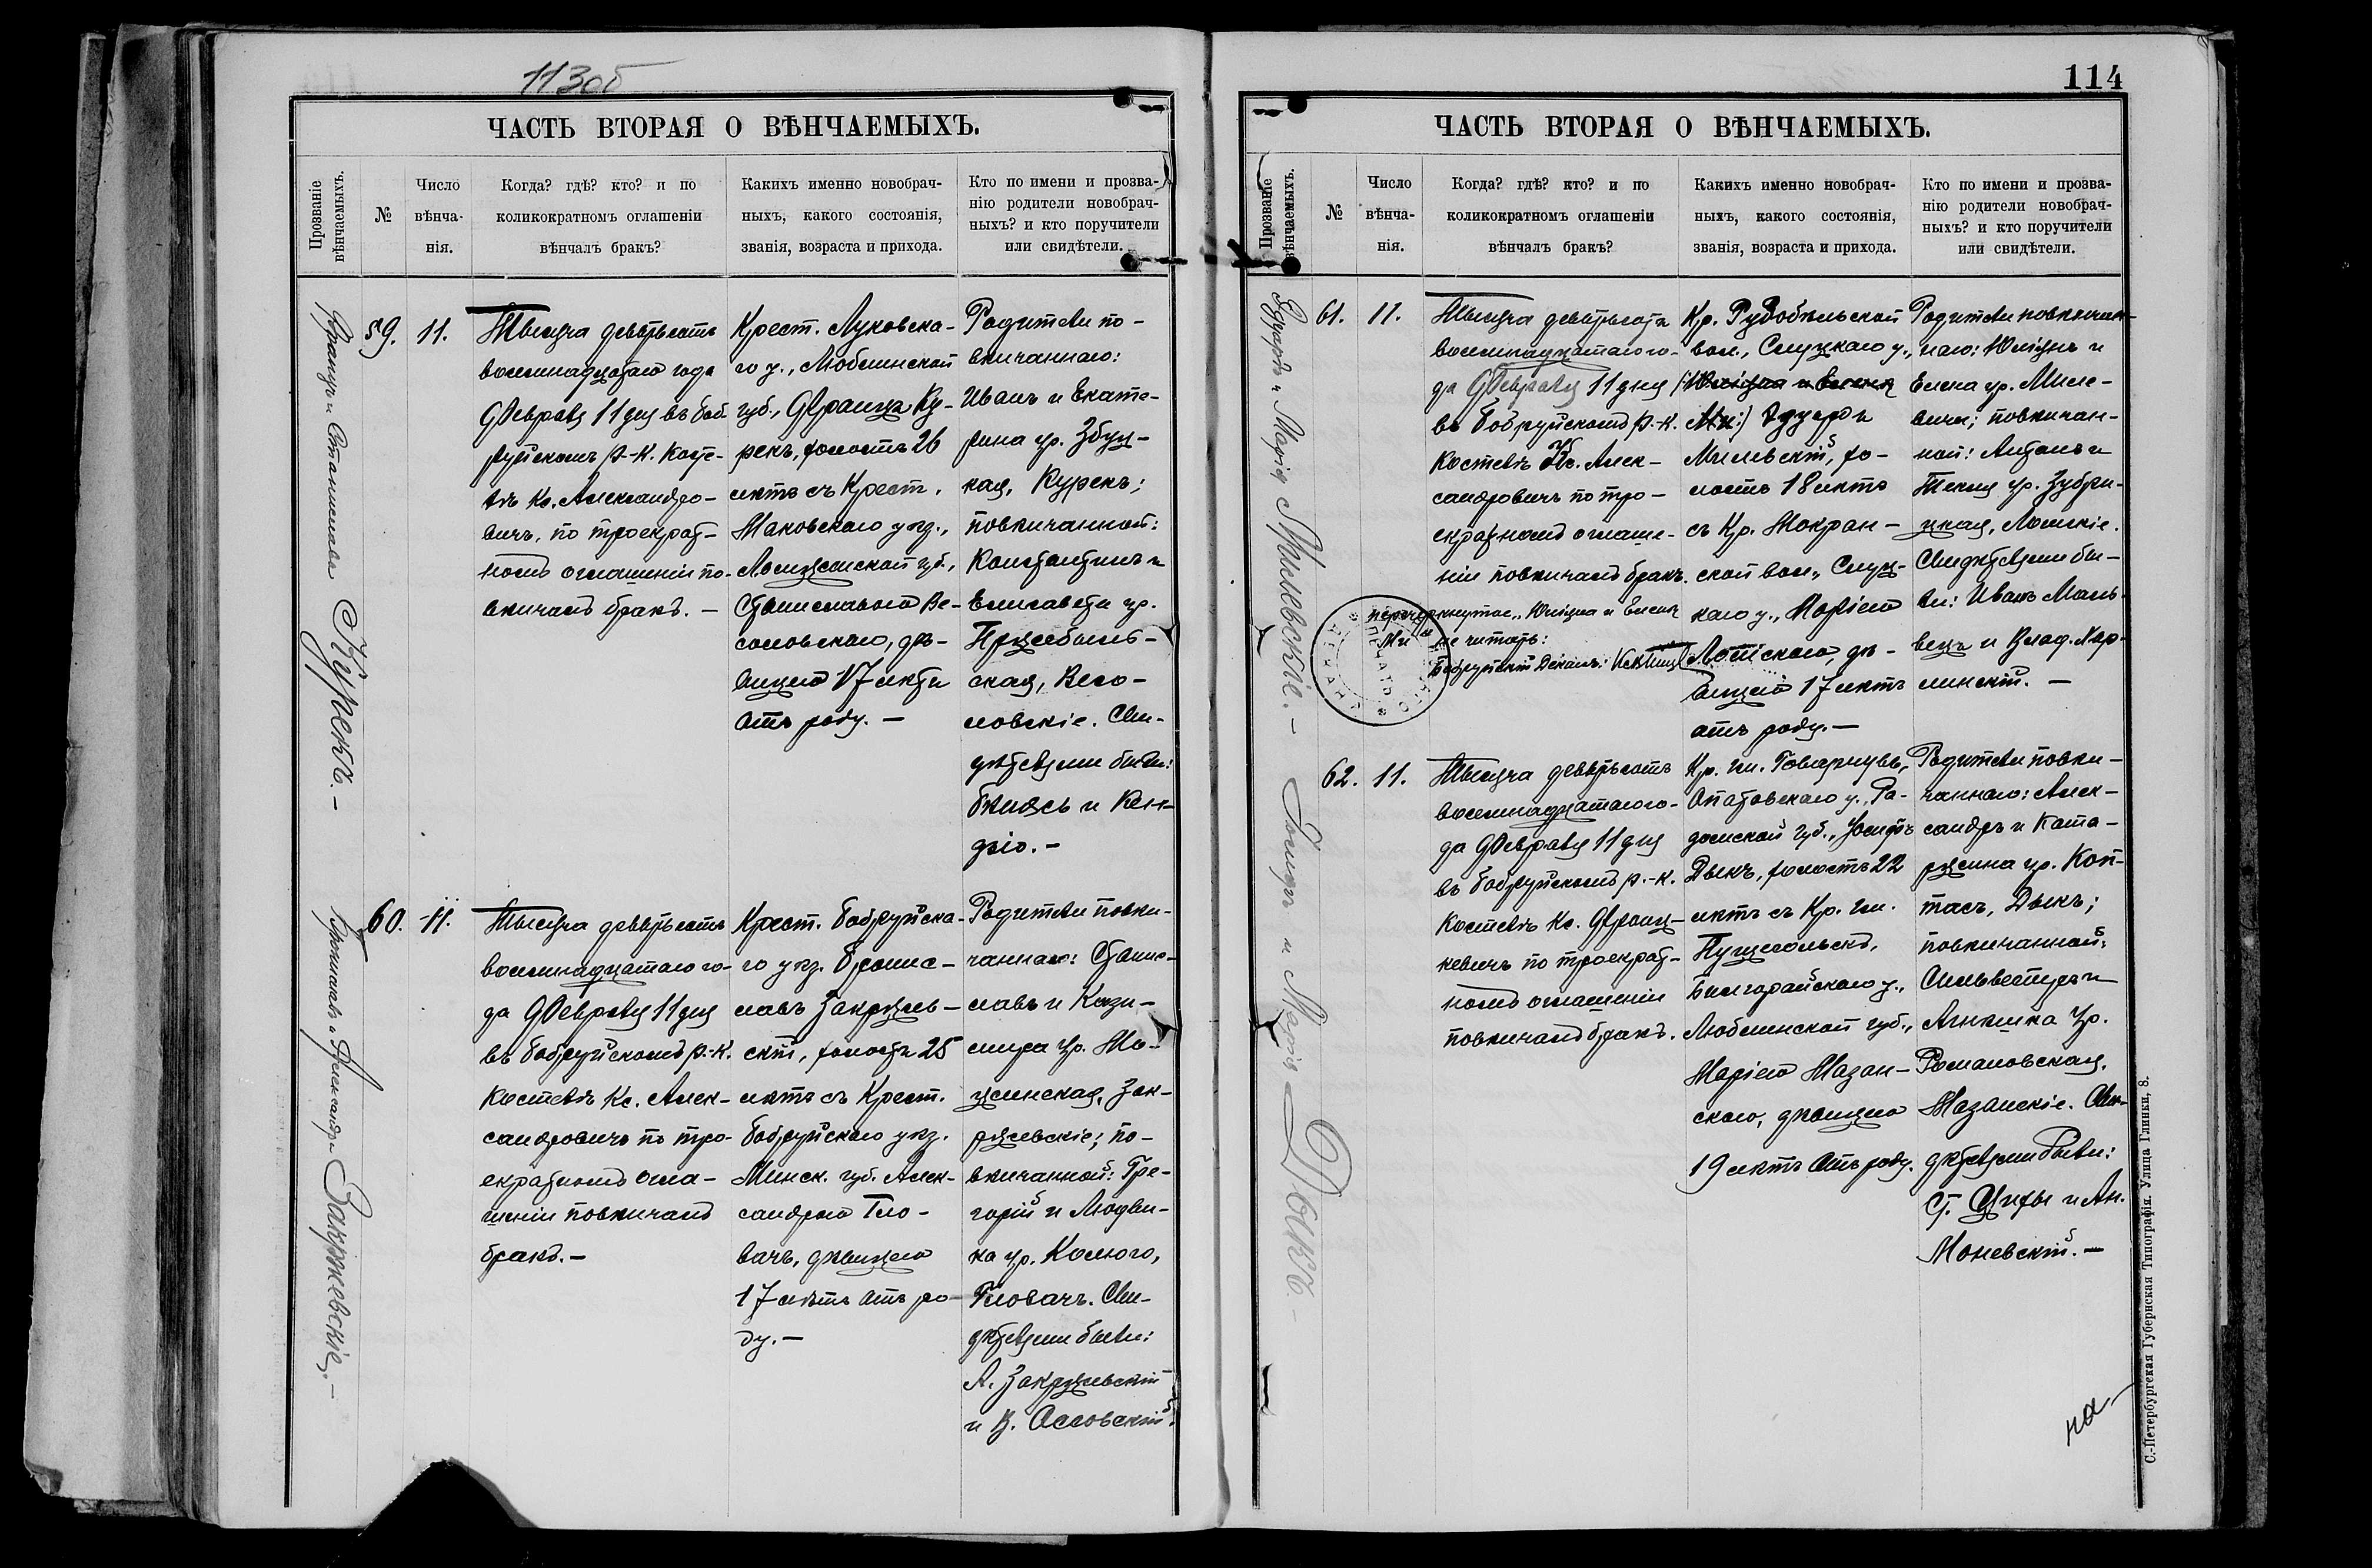 113об
ЧАСТЬ ВТОРАЯ О ВѢНЧАЕМЫХЪ.
Прозваніе вѣнчаемыхъ.
№
Число вѣнча-нія.
Когда? гдѣ? кто? и по
коликократномъ оглашеніи
вѣнчалъ бракъ?
Какихъ именно новобрач-
ныхъ, какого состоянія,
званія, возраста и прихода.
Кто по имени и прозва-
нію родители новобрач-
ныхъ? и кто поручители
или свидѣтели.
Францъ и Станислава Курекъ. —
59.
11.
Тысяча девятьсотъ
восемнадцатаго года
Февраля 11 дня въ Боб-
руйскомъ р.-к. Косте-
лѣ Кс. Александро-
вичъ, по троекрат-
номъ оглашеніи по-
вѣнчалъ бракъ. —
Крест. Луковска-
го у., Люблинской
губ., Францъ Ку-
рекъ, холостъ 26
лѣтъ съ Крест.
Маковскаго уѣз.,
Ломжинской губ.,
Станиславою Ве-
соловскою, дѣ-
вицею 17 лѣтъ
отъ роду. —
Родители по-
вѣнчаннаго:
Иванъ и Екате-
рина ур. Збуц-
кая, Курекъ;
повѣнчанной:
Константинъ и
Елисавета ур.
Пржебыль-
ская, Весо-
ловскіе. Сви-
дѣтелями были:
и Кен-
дзю. —
Брониславъ и Александра Закржевскіе. —
60.
11.
Тысяча девятьсотъ
восемнадцатаго го-
да Февраля 11 дня
въ Бобруйскомъ р.-к.
Костелѣ Кс. Алек-
сандровичъ по тро-
екратномъ огла-
шеніи повѣнчалъ
бракъ. —
Крест. Бобруйска-
го уѣз. Бронис-
лавъ Закржев-
скій, холостъ 25
лѣтъ съ Крест.
Бобруйскаго уѣз.
Минск. губ. Алек-
сандрою Гло-
вачъ, дѣвицею
17 лѣтъ отъ ро-
ду. —
Родители повѣн-
чаннаго: Станис-
лавъ и Кази-
мира ур. Мо-
цинская, Зак-
ржевскіе; по-
вѣнчанной: Гре-
горій и Людви-
ка ур. Калюго,
Гловачъ. Сви-
дѣтелями были:
А. Закржевскій
и В. Ословскій.
114
ЧАСТЬ ВТОРАЯ О ВѢНЧАЕМЫХЪ.
Прозваніе вѣнчаемыхъ.
№
Число вѣнча-нія.
Когда? гдѣ? кто? и по
коликократномъ оглашеніи
вѣнчалъ бракъ?
Какихъ именно новобрач-
ныхъ, какого состоянія,
званія, возраста и прихода.
Кто по имени и прозва-
нію родители новобрач-
ныхъ? и кто поручители
или свидѣтели.
Эдуардъ и Марія Милевскіе. —
61.
11.
Тысяча девятьсотъ
восемнадцатаго го-
да Февраля 11 дня
въ Бобруйскомъ р.-к.
Костелѣ Кс. Алек-
сандровичъ по тро-
екратномъ оглаше-
ніи повѣнчалъ бракъ.
перечеркнутое „Юліяна и Елена
Ми" не читать:
Бобруйскій Деканъ: Кс.
Кр. Рудобѣльской
вол., Слуцкаго у.,
(Юліяна и Елена
Ми:) Эдуардъ
Милевскій, хо-
лостъ 18 лѣтъ
съ Кр. Мокран-
ской вол., Слуц-
каго у., Маріею
дѣ-
вицею 17 лѣтъ
отъ роду. —
Родители повѣнчан-
наго: Юліянъ и
Елена ур. Миле-
вичъ; повѣнчан-
ной: Антонъ и
Текля ур. Зубри-
цкая,
Свидѣтелями бы-
ли: Иванъ Маль-
вецъ и Влад. Мар-
линскій. —
Іосифъ и Марія Дыкъ. —
62.
11.
Тысяча девятьсотъ
восемнадцатаго го-
да Февраля 11 дня
въ Бобруйскомъ р.-к.
Костелѣ Кс. Франц-
кевичъ по троекрат-
номъ оглашеніи
повѣнчалъ бракъ.
Кр. гм.
Опатовскаго у., Ра-
домской губ., Іосифъ
Дыкъ, холостъ 22
лѣтъ съ Кр. гм.
Пущепольскъ,
Билгорайскаго у.,
Люблинской губ.,
Маріею Мазан-
скою, дѣвицею
19 лѣтъ отъ роду.
Родители повѣн-
чаннаго: Алек-
сандръ и Ката-
ржина ур. Коп-
тасъ, Дыкъ;
повѣнчанной:
Сильвестръ и
Агнѣшка ур.
Романовская,
Мазанскіе. Сви-
дѣтелями были:
Ст. Цихы и Ан.
Моневскій. —
на
С.-Петербургская Губернская Типографія. Улица Глинки, 8.